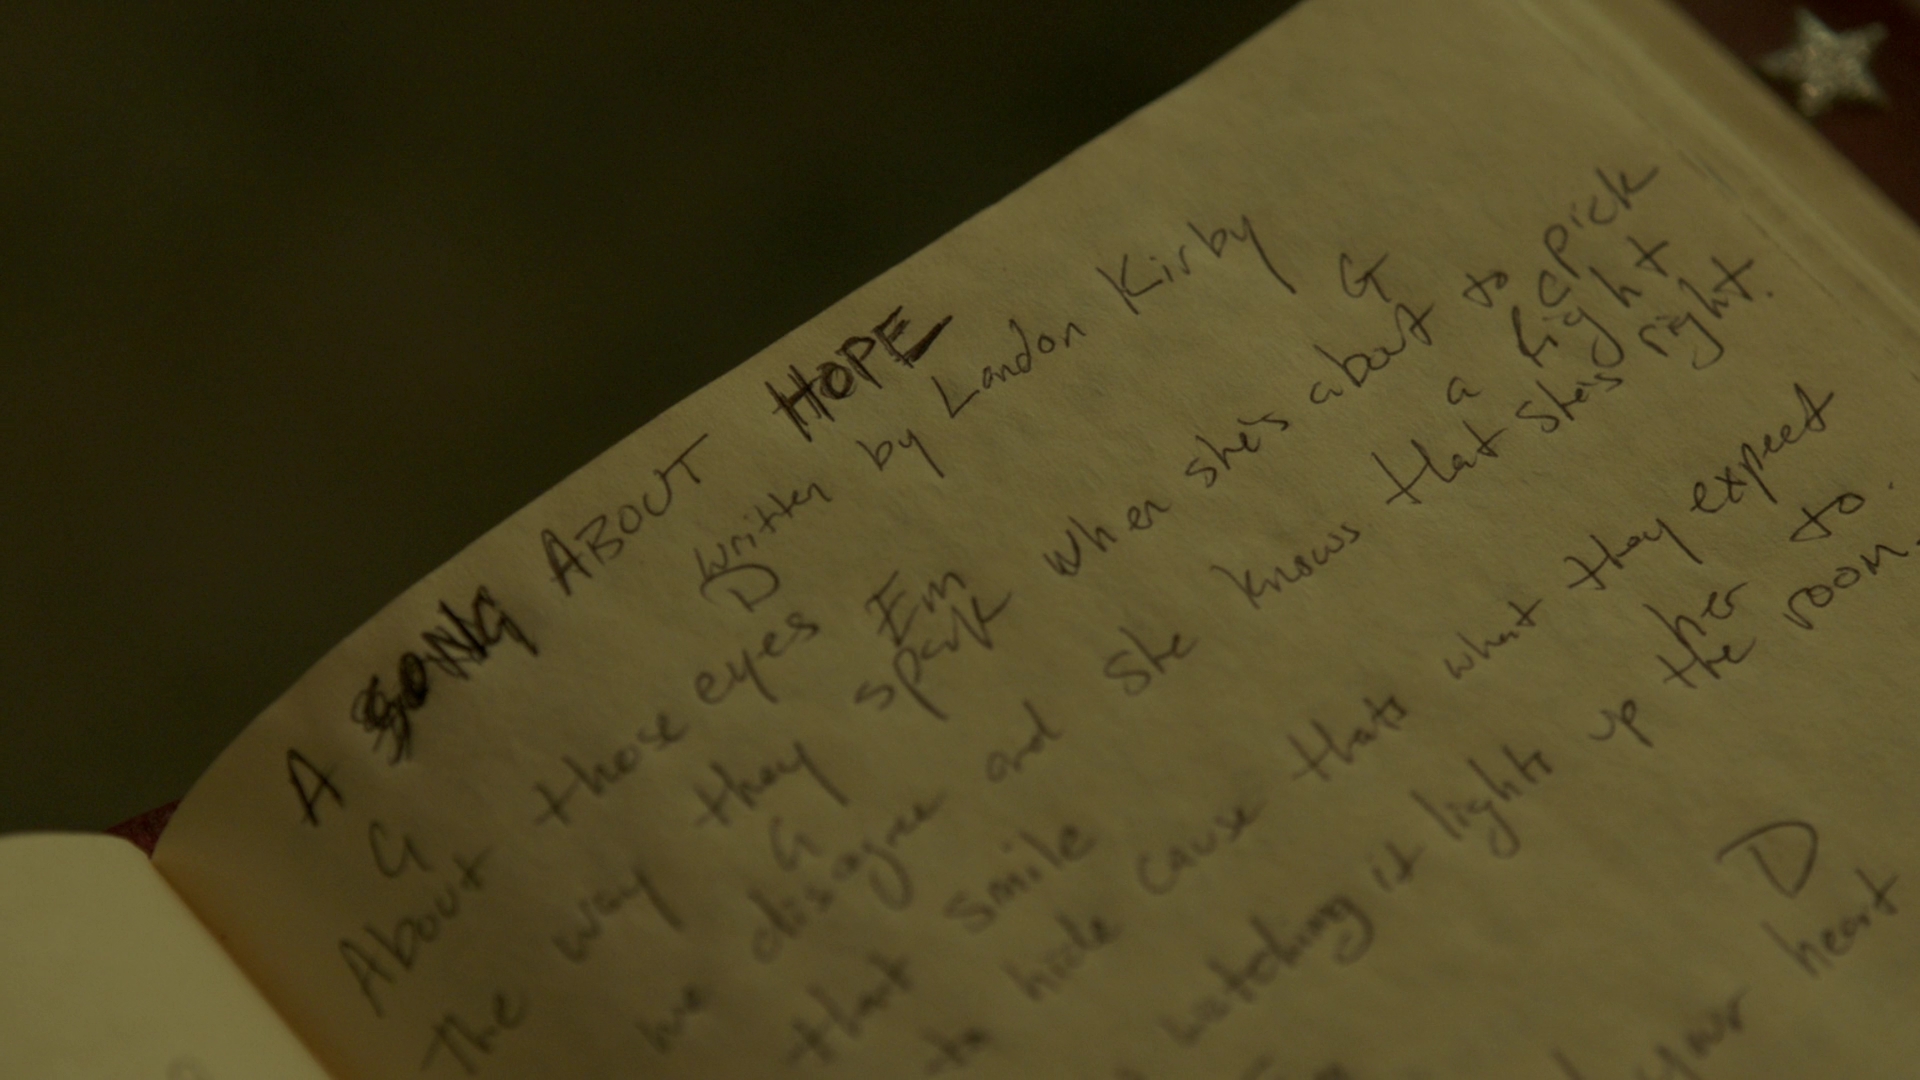 A SONG ABOUT HOPE
written by Landon Kirby
G D Em G C
About those eyes
The way they spark when she's about to pick
a fight
G
we disagree and she knows that she's right.
that smile
to hide cause thats what they expect
her to.
watching it lights up the room.
D
your heart